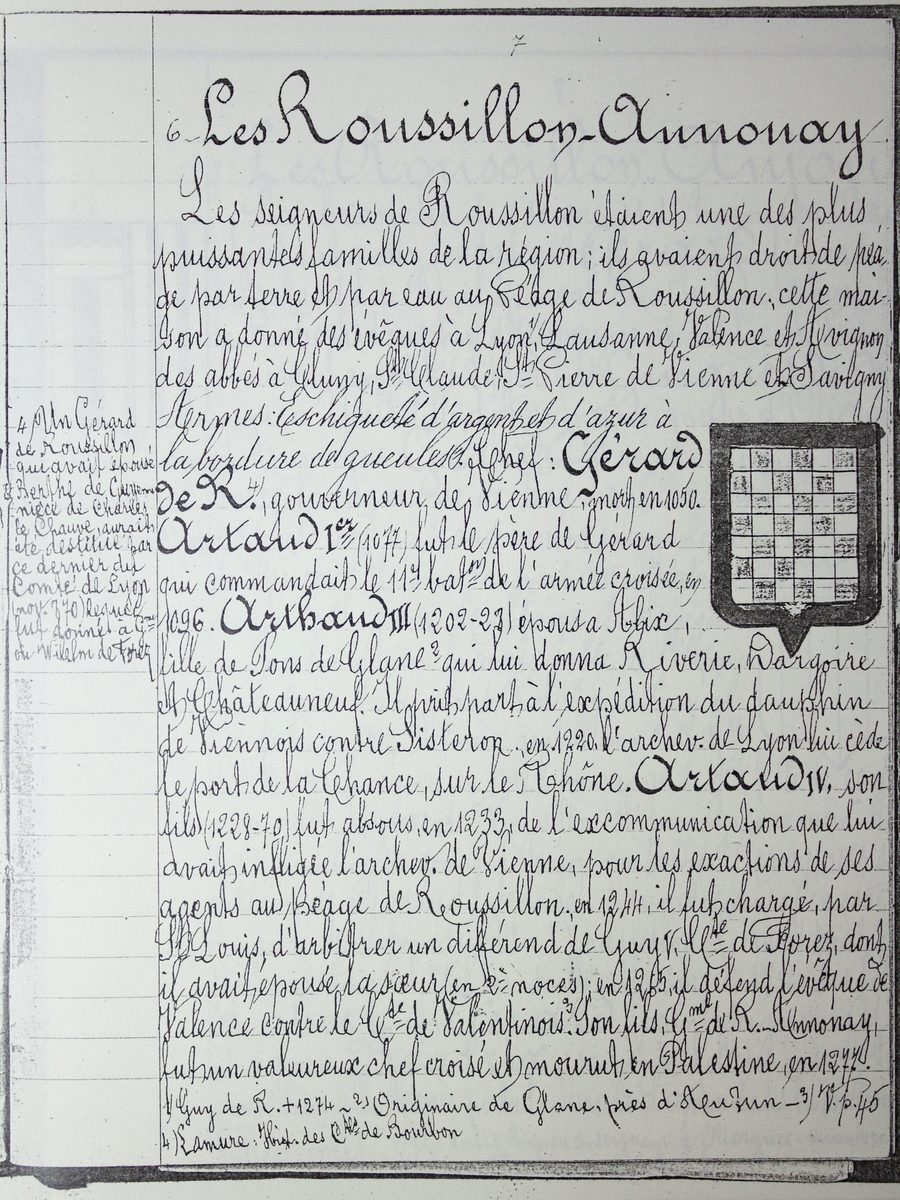 7
6 Les Roussillon-Annonay
Les seigneurs de Roussillon étaient une des plus
puissantes familles de la région; ils avaient droit de péa-
ge par terre et par eau au Péage de Roussillon; cette mai-
son a donné des évêques à Lyon¹, Lausanne, Valence et Avignon
des abbés à Cluny, St Claude, St Pierre de Vienne et Savigny
Armes: Eschiqueté d'argent et d'azur à
la bordure de gueules. Chef: Gérard
de R.⁴⁾, gouverneur de Vienne, mort en 1050.
Artaud Ier (1077) fut le père de Gérard
qui commandait le 11e batm de l'armée croisée, en
1096. Arthaud III (1202-28) épousa Alix,
fille de Pons de Glane² qui lui donna Riverie, Dargoire
et Châteauneuf. Il prit part à l'expédition du dauphin
de Viennois contre Sisteron. en 1220. l'archev. de Lyon lui cède
le port de la Chance, sur le Rhône. Artaud IV, son
fils (1228-70) fut absous, en 1233, de l'excommunication que lui
avait infligée l'archev. de Vienne, pour les exactions de ses
agents au péage de Roussillon. en 1244, il fut chargé, par
St Louis, d'arbitrer un différend de Guy V, Cte de Forez, dont
il avait épousé la sœur (en 2e noces); en 1265, il défend l'évêque de
Valence contre le Cte de Valentinois³. Son fils, Gme de R.-Annonay,
fut un valeureux chef croisé et mourut, en Palestine, en 1277.
1) Guy de R. + 1274 - 2) Originaire de Glane, près d' - 3) V. p. 45
4) Ramure. Hist. des Ctes de Bourbon
4 Un Gérard
de Roussillon,
qui avait épousé
Berthe de
nièce de Charles
le Chauve, aurait
été destitué par
ce dernier du
Comté de Lyon
(nov. 370) lequel
fut donné à Gme
ou Wilelm de Forez